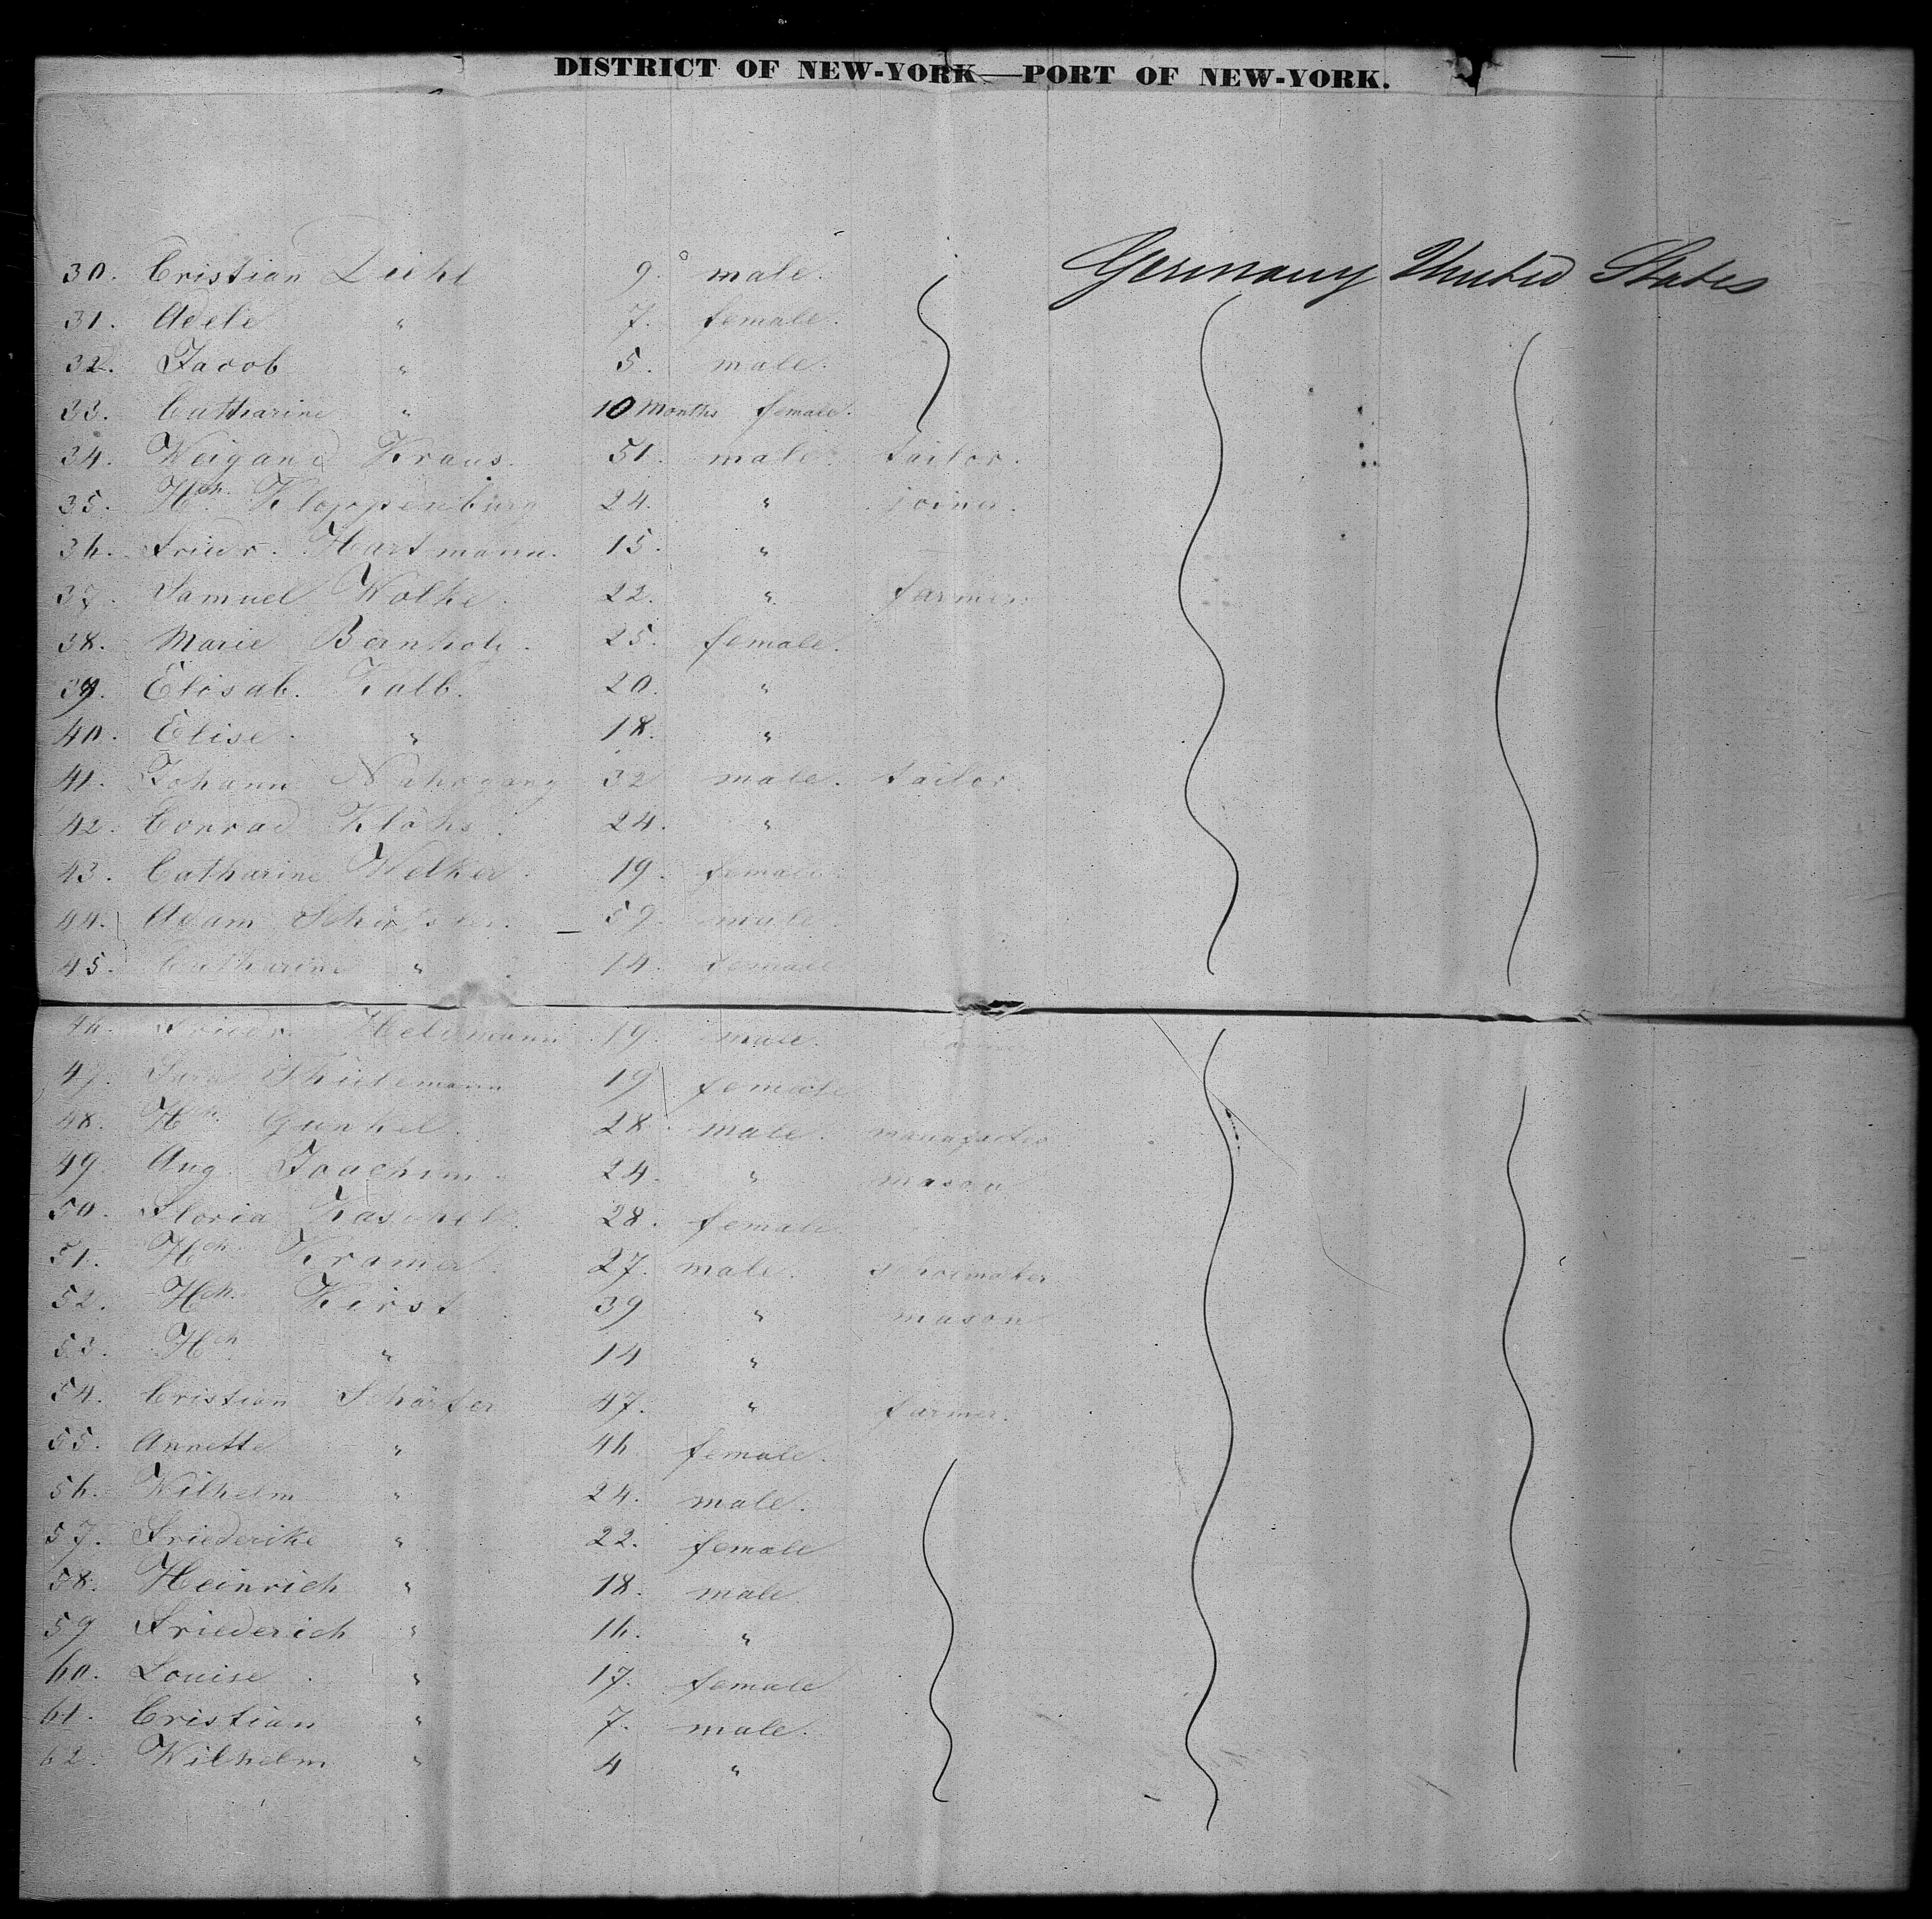 DISTRICT OF NEW-YORK—PORT OF NEW-YORK.
30. Cristian Diehl 9. male. Germany United States
31. Adele " 7. female.
32. Jacob " 5. male.
33. Catharine " 10 Months female.
34. Weigand Kraus. 51. male. tailor.
35. Hch. Kloppenburg 24. " joiner.
36. Friedr. Hartmann. 15. "
37. Samuel Wolke. 22. " farmer.
38. Marie Bernholz. 25. female.
39. Elisab. Kalb. 20. "
40. Elise. " 18. "
41. Johann Nahrgang 32 male. tailor.
42. Conrad Klöhs. 24. "
43. Catharine Welker. 19. female.
44. Adam 59. male
45. Catharine " 14. female
46. Friedr. 19. male.
47. Thielemann 19 female
48. Hch Gunkel. 28. male.
49. Aug. Joachim. 24. " mason
50. Floria Kaschel. 28. female
51. Hch. Kramer. 27. male. schoemaker
52. Hch. Kirst 39 " mason
53. Hch " 14 "
54. Cristian Schäfer 47. " farmer.
55. Annette " 46 female.
56. Wilhelm " 24. male.
57. Friederike " 22. female
58. Heinrich " 18. male.
59 Friederich " 16. "
60. Louise. " 17. female
61. Cristian " 7. male.
62. Wilhelm " 4 "